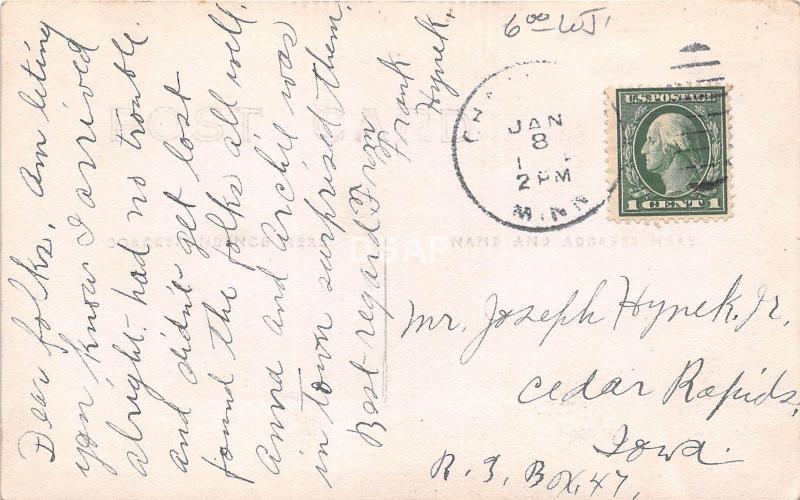 Dear folks, Am leting
you know I arrived
alright. had no trouble.
and didnt get lost
found the folks all well.
Anna and Archie was
in town surprised them.
Best regard Friend
Frank
Hynek.
6⁰⁰ WJ
POST CARD
CORRESPONDENCE HERE
NAME AND ADDRESS HERE
JAN
8
2 PM
MINN
U.S. POSTAGE
1 CENT 1
Mr. Joseph Hynek, Jr.
Cedar Rapids,
Iowa.
R. 3, Box, 47,
DSAP